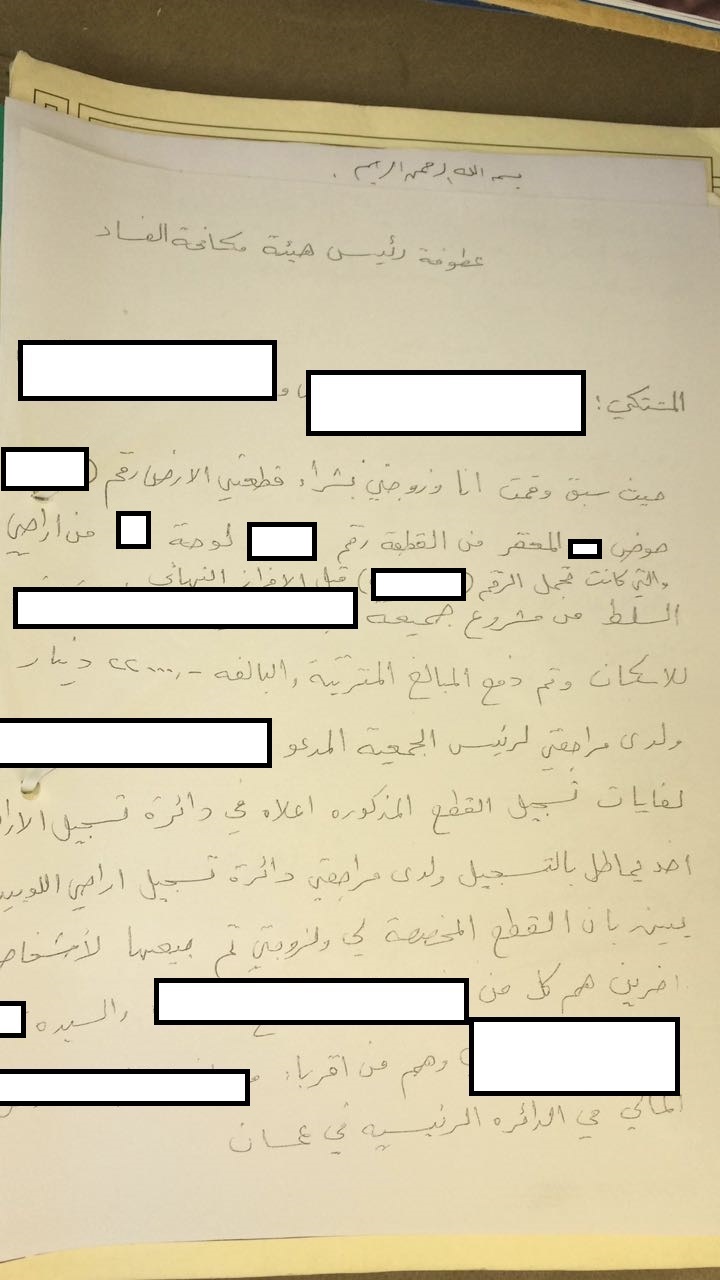 بسم الله الرحمن الرحيم .
عطوفة رئيس هيئة مكافحة الفساد
المشتكي : و
حيث سبق وقمت انا وزوجتي بشراء قطعتي الارض رقم (
حوض المعقر من القطعة رقم لوحة من اراضي
والتي كانت تحمل الرقم ( ) قبل الافراز النهائي
السلط من مشروع جمعية
للاسكان وتم دفع المبالغ المترتبة والبالغه ٢٢٠٠٠,- دينار
ولدى مراجعتي لرئيس الجمعية المدعو
لغايات تسجيل القطع المذكوره اعلاه في دائرة تسجيل
اخذ يماطل بالتسجيل ولدى مراجعتي دائرة تسجيل اراضي
يبين بان القطع المخصصة لي ولزوجتي تم بيعها لأشخاص
اخرين هم كل من والسيده
وهم من اقرباء
المالي في الدائره الرئيسيه في عمان